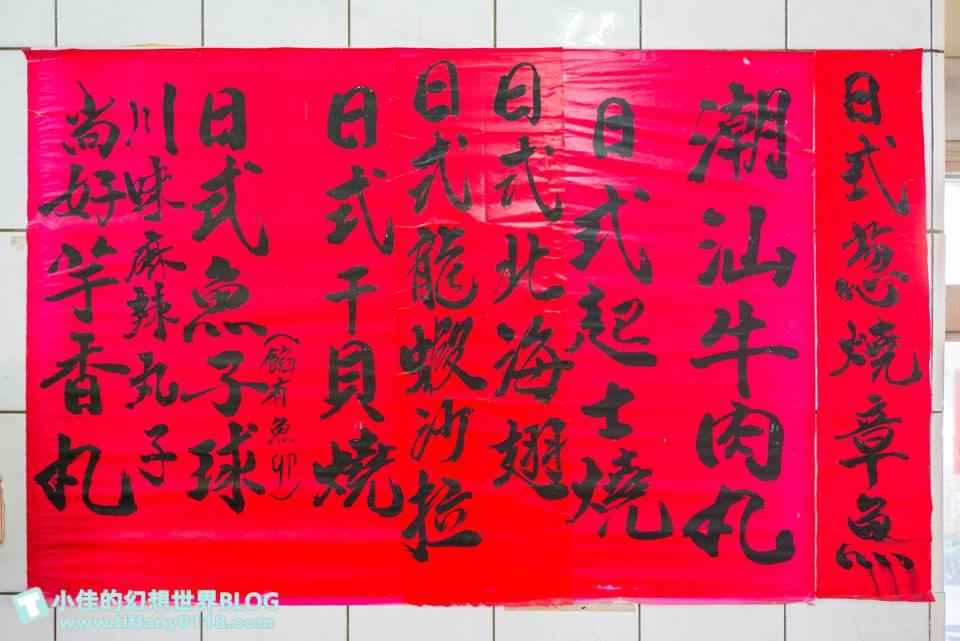 日式葱燒章魚
潮汕牛肉丸
日式起士燒
日式北海翅
日式龍蝦沙拉
日式干貝燒
日式魚子球
(餡有魚卵)
川味麻辣丸子
尚好芋香丸
小佳的幻想世界BLOG
www.tiffany0118.com